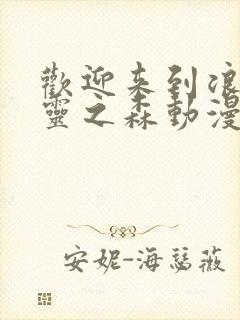 歡迎来到浪
靈之森動漫
安妮-海瑟薇